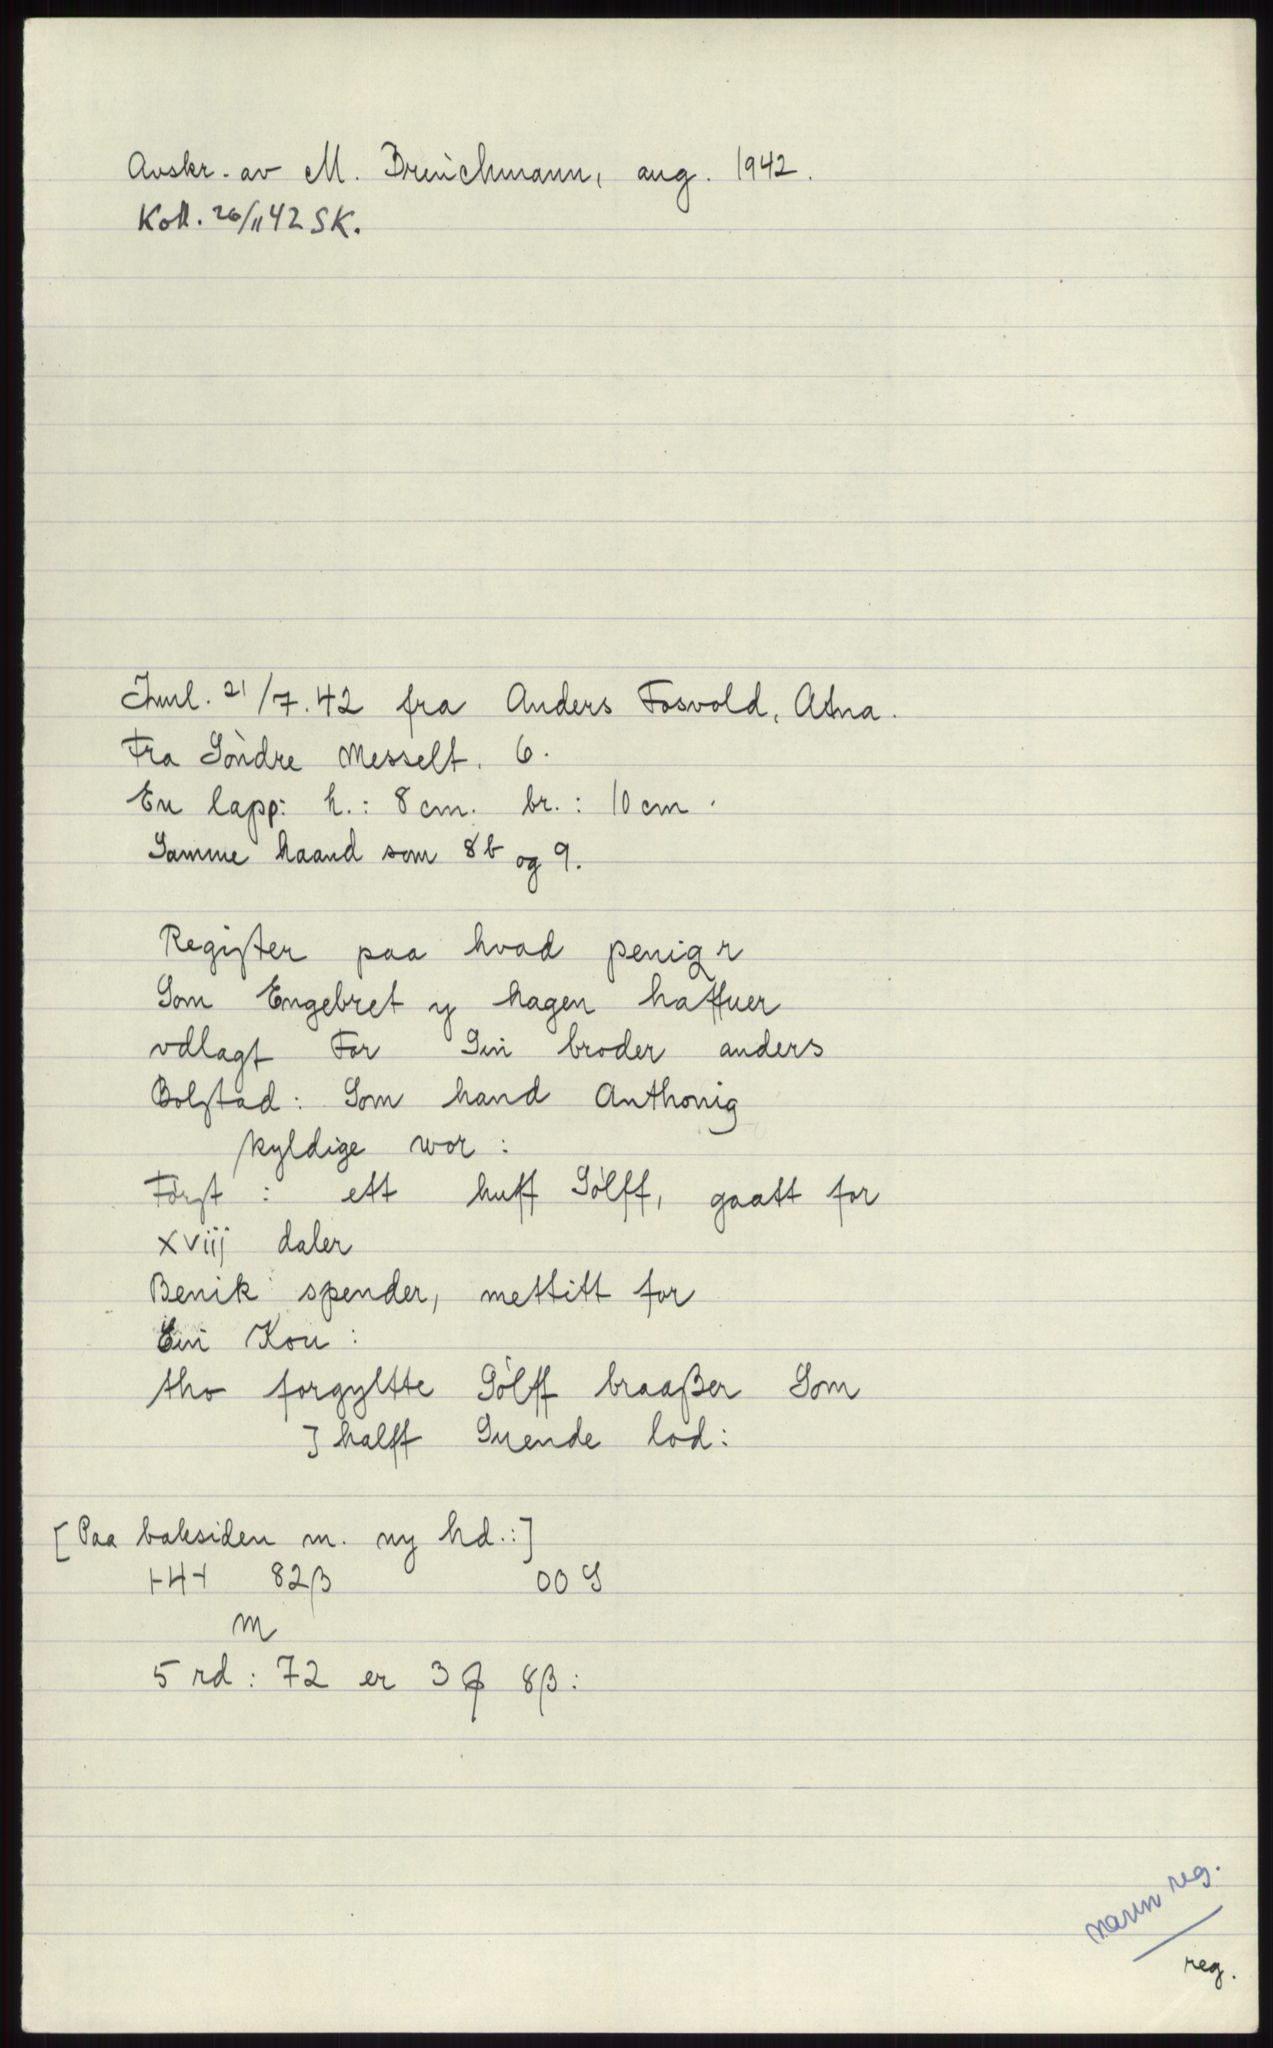 Avskr. av M. Brinchmann, aug. 1942.
Koll. 26/11 42 SK.
Innl. 21/7.42 fra Anders Fosvold, Atna.
Fra Söndre Messelt. 6.
En lapp: h.: 8 cm. br.: 10 cm.
Samme haand som 8b og 9.
Register paa hvad penig r
Som Engebret y hagen haffuer
vdlagt For Sin broder anders
Bolstad: Som hand Anthonig
skyldige wor:
Först: ett huff Sölff, gaatt for
xviij daler
Benik spender, mettitt for
Ein Kou:
tho forgyltte Sölff braaßer Som
J halft Siuende lod:
[Paa baksiden m. ny hd.:]
82 β 00 S
m
5 rd: 72 er 3 8β:
navn reg.
reg.